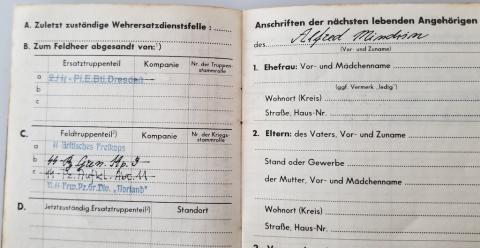 A. Zuletzt zuständige Wehrersatzdienststelle :
B. Zum Feldheer abgesandt von:¹)
Ersatztruppenteil Kompanie Nr. der Truppen-
stammrolle
a Pi.E.Btl. Dresden
b
c
C. Feldtruppenteil²) Kompanie Nr. der Kriegs-
stammrolle
a Britisches Freikops
b
c 11
"Norland"
D. Jetztzuständig. Ersatztruppenteil²) Standort
Anschriften der nächsten lebenden Angehörigen
des Alfred
(Vor- und Zuname)
1. Ehefrau: Vor- und Mädchenname
(ggf. Vermerk „ledig")
Wohnort (Kreis)
Straße, Haus-Nr.
2. Eltern: des Vaters, Vor- und Zuname
Stand oder Gewerbe
der Mutter, Vor- und Mädchenname
Wohnort (Kreis)
Straße, Haus-Nr.